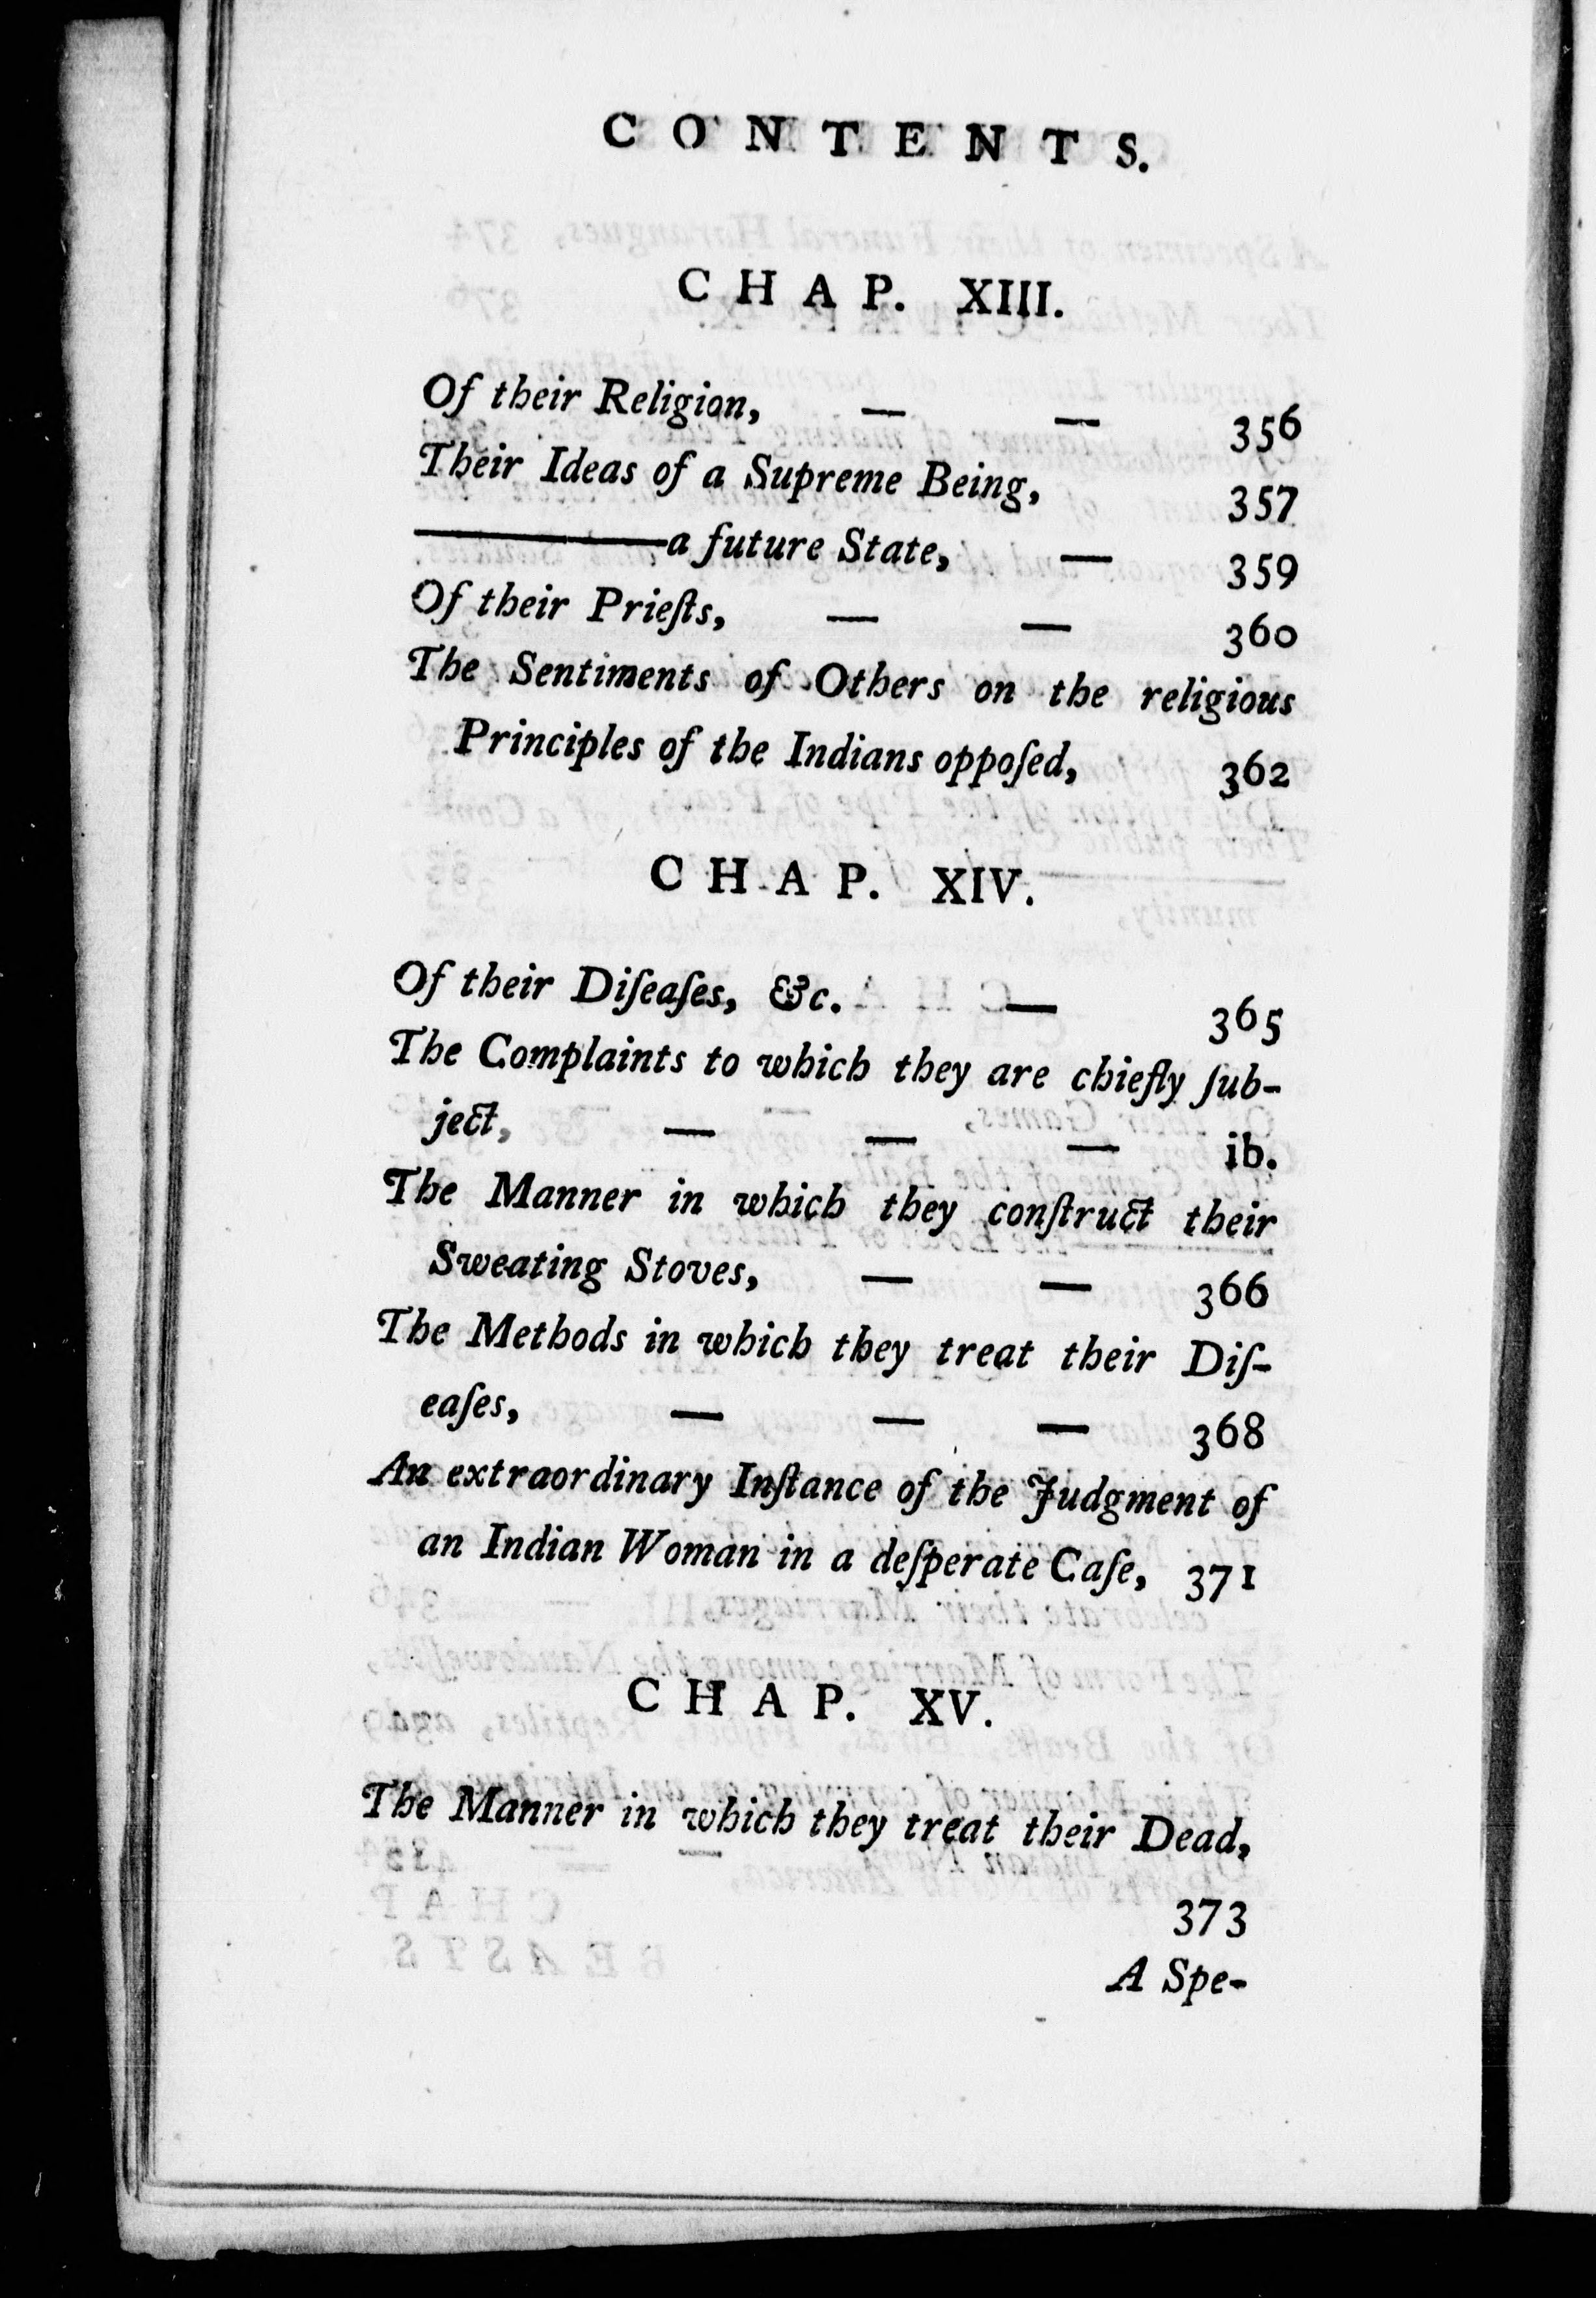 CONTENTS.
CHAP. XIII.
Of their Religion, — — 356
Their Ideas of a Supreme Being, 357
———a future State, — 359
Of their Prieſts, — — 360
The Sentiments of Others on the religious
Principles of the Indians oppoſed, 362
CHAP. XIV.
Of their Diſeaſes, &c. — 365
The Complaints to which they are chiefly ſub-
ject, — — — ib.
The Manner in which they conſtruct their
Sweating Stoves, — — 366
The Methods in which they treat their Diſ-
eaſes, — — — 368
An extraordinary Inſtance of the Judgment of
an Indian Woman in a deſperate Caſe, 371
CHAP. XV.
The Manner in which they treat their Dead,
373
A Spe-